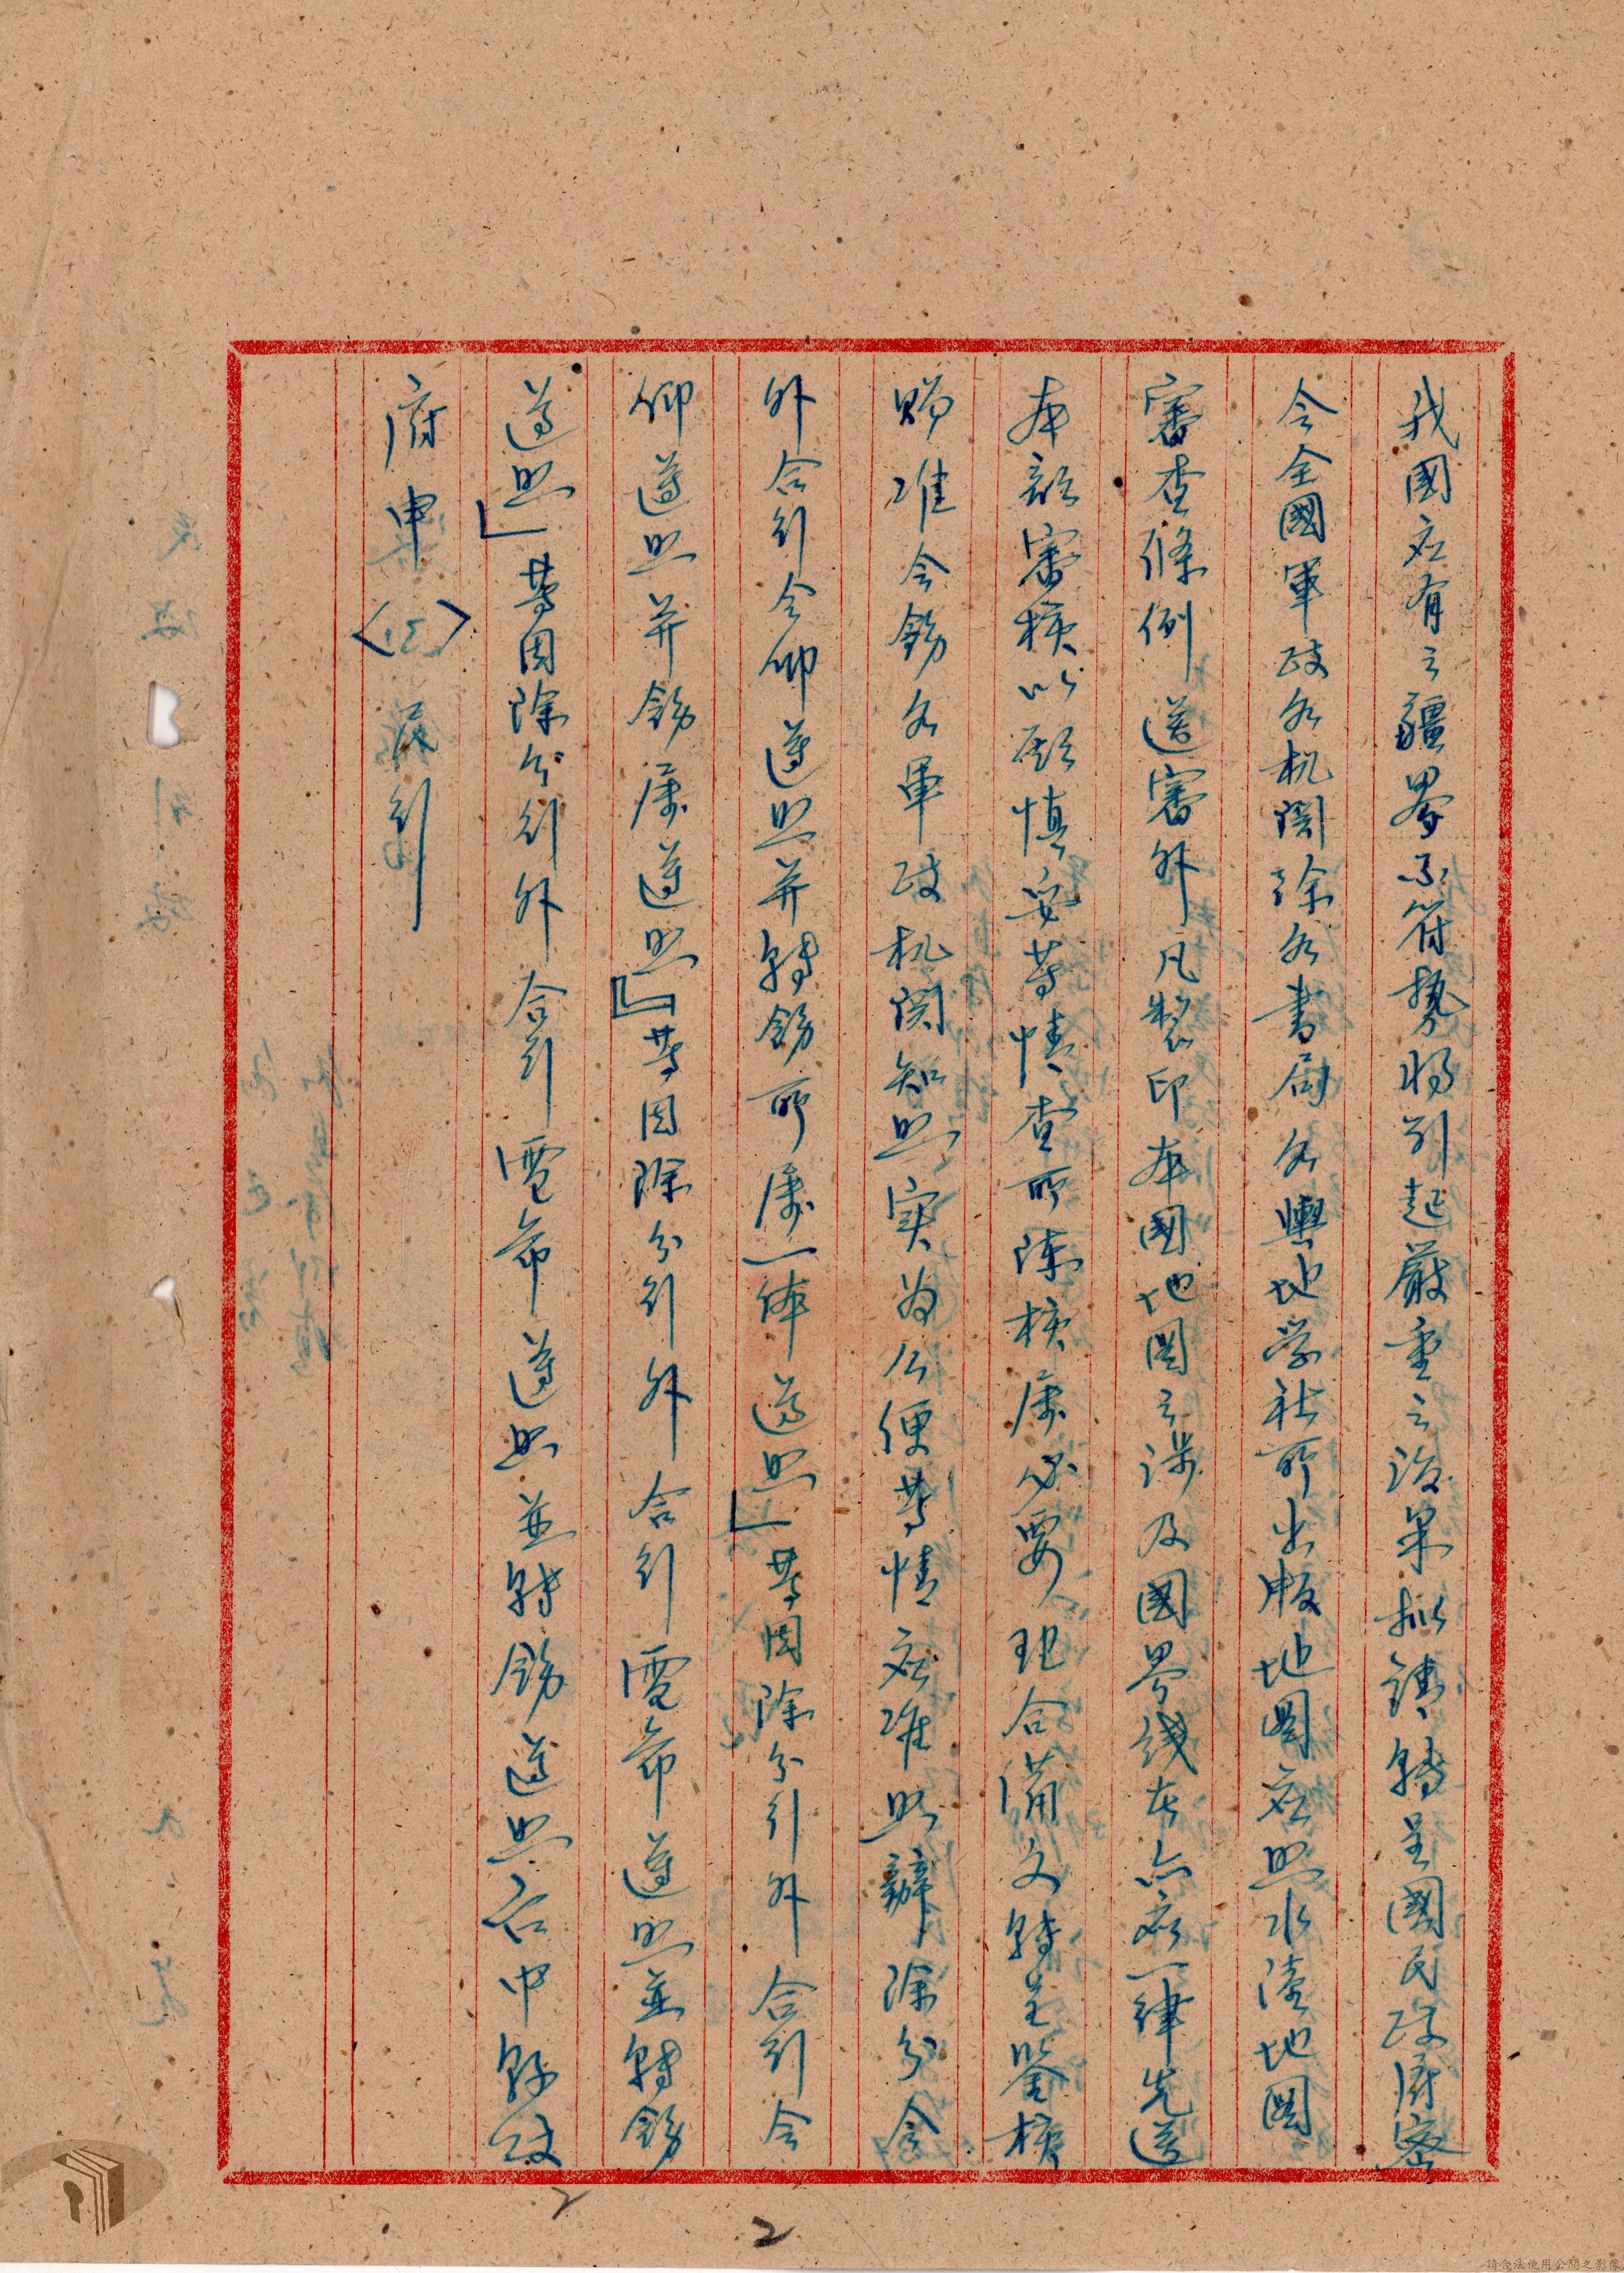 我國应有之疆界不符勢将引起嚴重之後果拟請轉呈國民政府密
令全國軍政各机関除各書局各輿地学社所出版地圖应照水陸地圖
審查條例送審外凡製印本國地图之涉及國界线者亦应一律先送
本部審核以昭慎妥等情查所陳核屬必要理合備文轉呈鑒核
賜准令飭各軍政机関知照实為公便等情应准照辦除分令
外合行令仰遵照并轉飭所屬一体遵照」等因除分行外合行令
仰遵照并飭屬遵照』等因除分行外合行電希遵照並轉飭
遵照」等因除分行外合行電希遵照並轉飭遵照台中縣政
府申〈 〉民行
2
2
請合法使用公開之影像